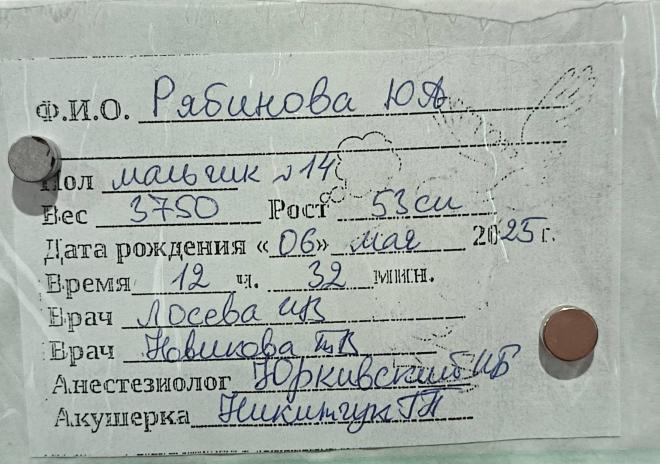 Ф.И.О. Рябинова ЮА
Пол мальчик №14
Вес 3750 Рост 53см
Дата рождения «06» мая 2025 г.
Время 12 ч. 32 мин.
Врач Лосева ИВ
Врач Новикова ТВ
Анестезиолог Юркивский ИБ
Акушерка Никитчук ГН